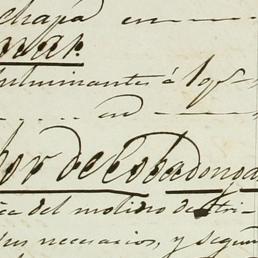 chapa en
mar.
culminantes á los
en
por de Cobadonga
ca del molino de tri-
bus necesarios, y segun